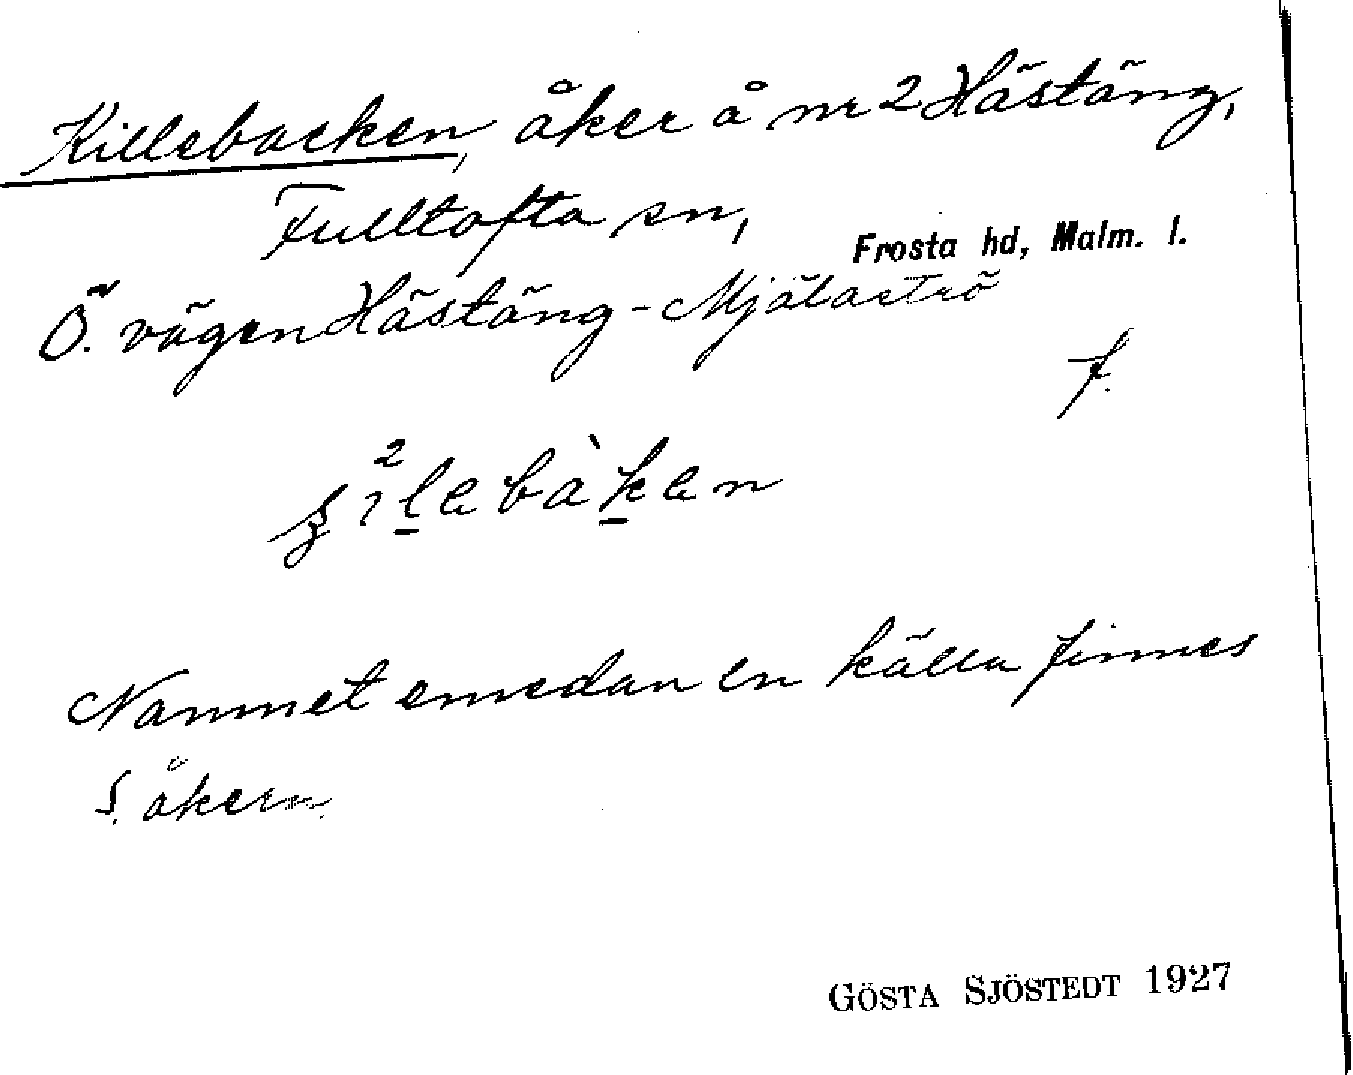 Killebacken, åker å nr 2 Hästäng,
Fulltofta sn, Frosta hd, Malm. l.
Ö. vägen Hästäng-Mjälaströ
f.
Namnet emedan en källa finnes
S. åkern.
GÖSTA SJÖSTEDT 1927